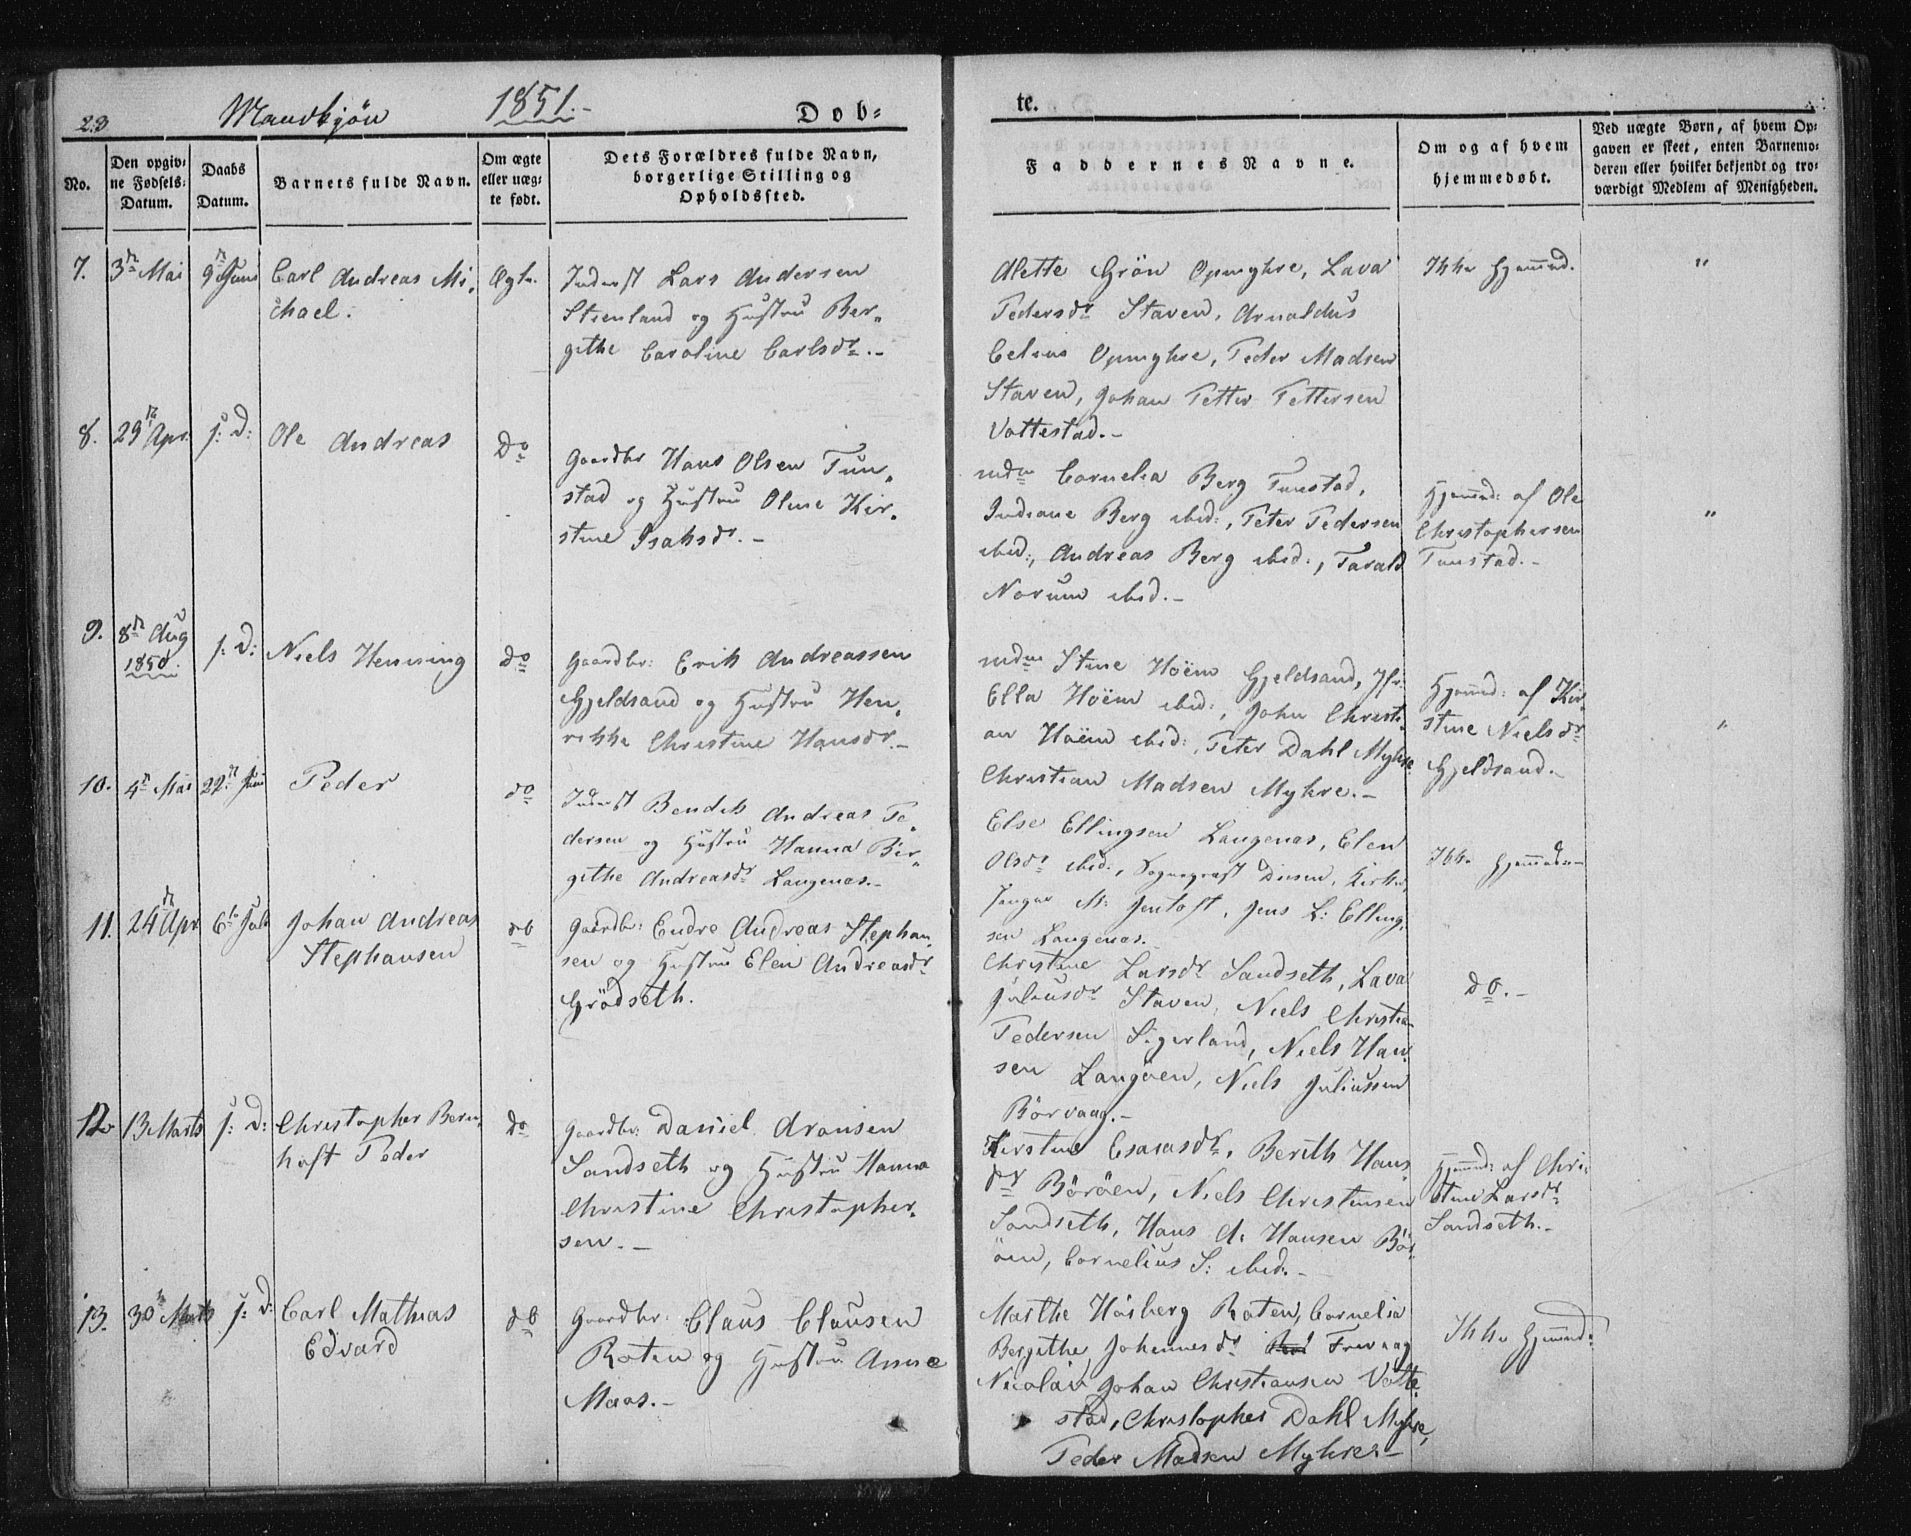 28 Mandkjøn 1851.- Døb- te.
No.
Den opgiv-
ne Fødsels-
Datum.
Daabs
Datum.
Barnets fulde Navn.
Om ægte
eller uæg-
te født.
Dets Forældres fulde Navn,
borgerlige Stilling og
Opholdssted.
Faddernes Navne.
Om og af hvem
hjemmedøbt.
Ved uægte Børn, af hvem Op-
gaven er skeet, enten Barnemo-
deren eller hvilket bekjendt og tro-
værdigt Medlem af Menigheden.
7. 3die Mai 9de Juni
Carl Andreas Mi-
chael.
Ægte.
Inderst Lars Andersen
Stienland og Hustru Ber-
githe Caroline Carlsdr.-
Alette Grön Opmyhre, Lava
Pedersdr Staven, Arnoldus
Celius Opmyhre, Peder Madsen
Staven, Johan Petter Pettersen
Vottestad.-
Ikke hjemmd.
"
8. 29de Apr. s: D:
Ole Andreas
Do
Gaardbr Hans Olsen Tun-
stad og Hustru Oline Kir-
stine Isaksdr.-
Cornelia Berg Tunstad,
Indiane Berg ibid:, Peter Pedersen
ibid:, Andreas Berg ibid:, Tarald
Norum ibid.-
Hjemmd: af Ole
Christophersen
Tunstad.-
"
9. 8de Aug
1850.
s: D:
Niels Henning
do
Gaardbr: Erik Andreassen
Gjeldsand og Hustru Hen-
rikke Christine Hansdr.-
Stine Höem Gjeldsand, Jfr:
Ella Höem ibid:, John Christi-
an Höem ibid:, Peter Dahl Myhre
Christian Madsen Myhre.-
Hjemmd: af Kir-
stine Nielsdr
Gjeldsand.-
"
10. 4de Mai 22de Juni
Peder
do
Inderst Bendik Andreas Pe-
dersen og Hustru Hanna Bir-
githe Andreasdr Langenes.-
Else Ellingsen Langenes, Elen
Olsdr ibid:, Sognepræst Diesen, Kirke-
sanger M: Jentoft, Jens L: Elling-
sen Langenes.-
Ikke hjemmd.-
11. 24de Apr 6te Juli
Johan Andreas
Stephansen
do
Gaardbr: Endre Andreas Stephan-
sen og Hustru Elen Andreasdr
Grödseth.
Christine Larsdr Sandseth, Lava
Juliusdr Staven, Niels Christian
Pedersen Sigerland, Niels Han-
sen Langöen, Niels Juliussen
Börvaag.-
do.-
12. 13 Marts s: D:
Christopher Bern-
hoft Peder
Do
Gaardbr: Daniel Aronsen
Sandseth og Hustru Hanna
Christine Christopher-
sen.-
Kirstine Esaiasdr, Berith Hans-
dr Böröen, Niels Christensen
Sandseth, Hans A: Hansen Bör-
öen, Cornelius S: ibid.-
Hjemmd: af Chri-
stine Larsdr
Sandseth.-
13. 30te Marts s: D:
Carl Mathias
Edvard
do
Gaardbr: Claus Clausen
Roten og Hustru Anne
Maas.-
Marthe Håsberg Roten, Cornelia
Bergithe Johannesdr Frivaag
Nicolai Johan Christiansen Votte-
stad, Christopher Dahl Myhre,
Peder Madsen Myhre.-
Ikke hjemmd: